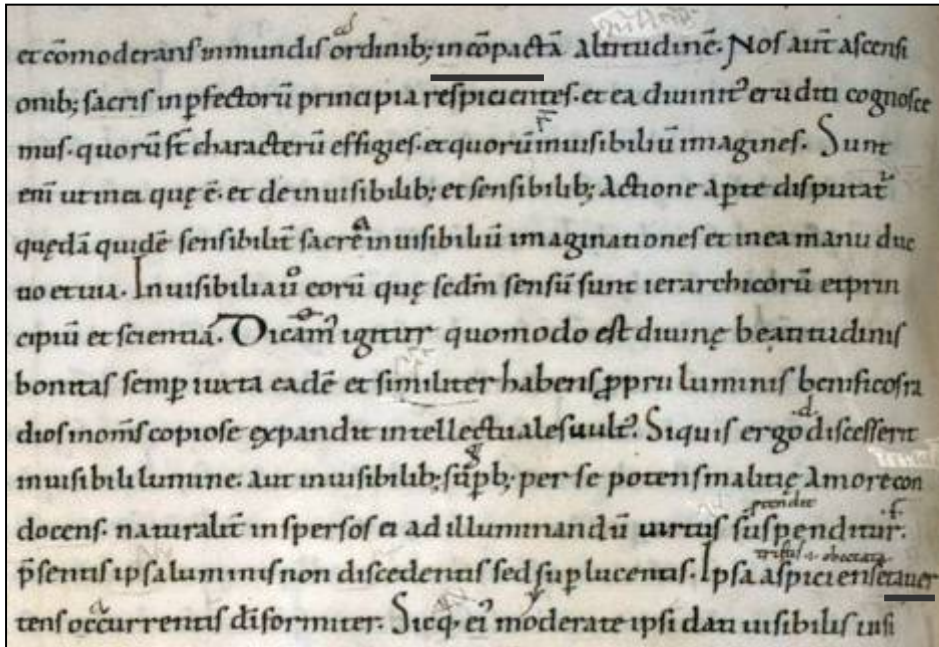 et cōmoderans inmundis ordinib; incōpactā altitudinē. Nos aut̄ ascensi
onib; sacris inp̄fectorū principia respicientes. et ea diuinit᾽ eruditi cognosce
mus. quorū st̄ characterū effigies. et quorū inuisibiliū imagines. Sunt
eni᷆ ut in ea quę ē. et de inuisibilib; et sensibilib; actione aperte disputat᾽
quędā quidē sensibilit̄ sacrę inuisibiliū imaginationes et in ea manu duc
tio et uia. Inuisibilia ū eorū quę scdm̄ sensū sunt ierarchicorū et prin
cipiū et scientiā. Dicam᾽ igitur quomodo est diuinę beatitudinis
bonitas semp̄ iuxta eadē et similiter habens ꝓprii luminis benificos ra
dios in om̄s copiose expandit intellectuales uult᾽. Siquis ergo discesserit
inuisibili lumine. aut inuisibilib; sup̄b; per se potens malitię amore con
docens. naturalit̄ inspersos ei ad illuminandū uirtus suspenditur.
p̄sentis ipsa luminis non discedentis sed sup̄lucentis. Ipsa aspiciens et auer
tens occurrentis di᷆formiter. Sicq. ei᾽ moderate ipsi dati uisibilis uisi